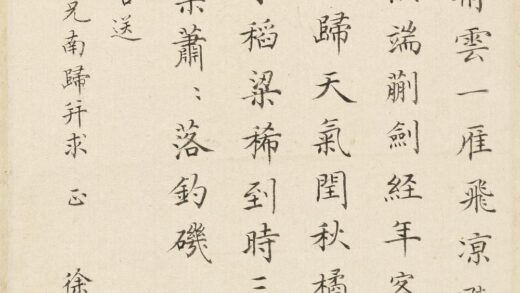 雲一雁飛涼
端蒯劍経年客
歸天氣閏秋橘
稻粱稀到時三
蕭〻落釣磯
送
兄南歸并求 正 徐